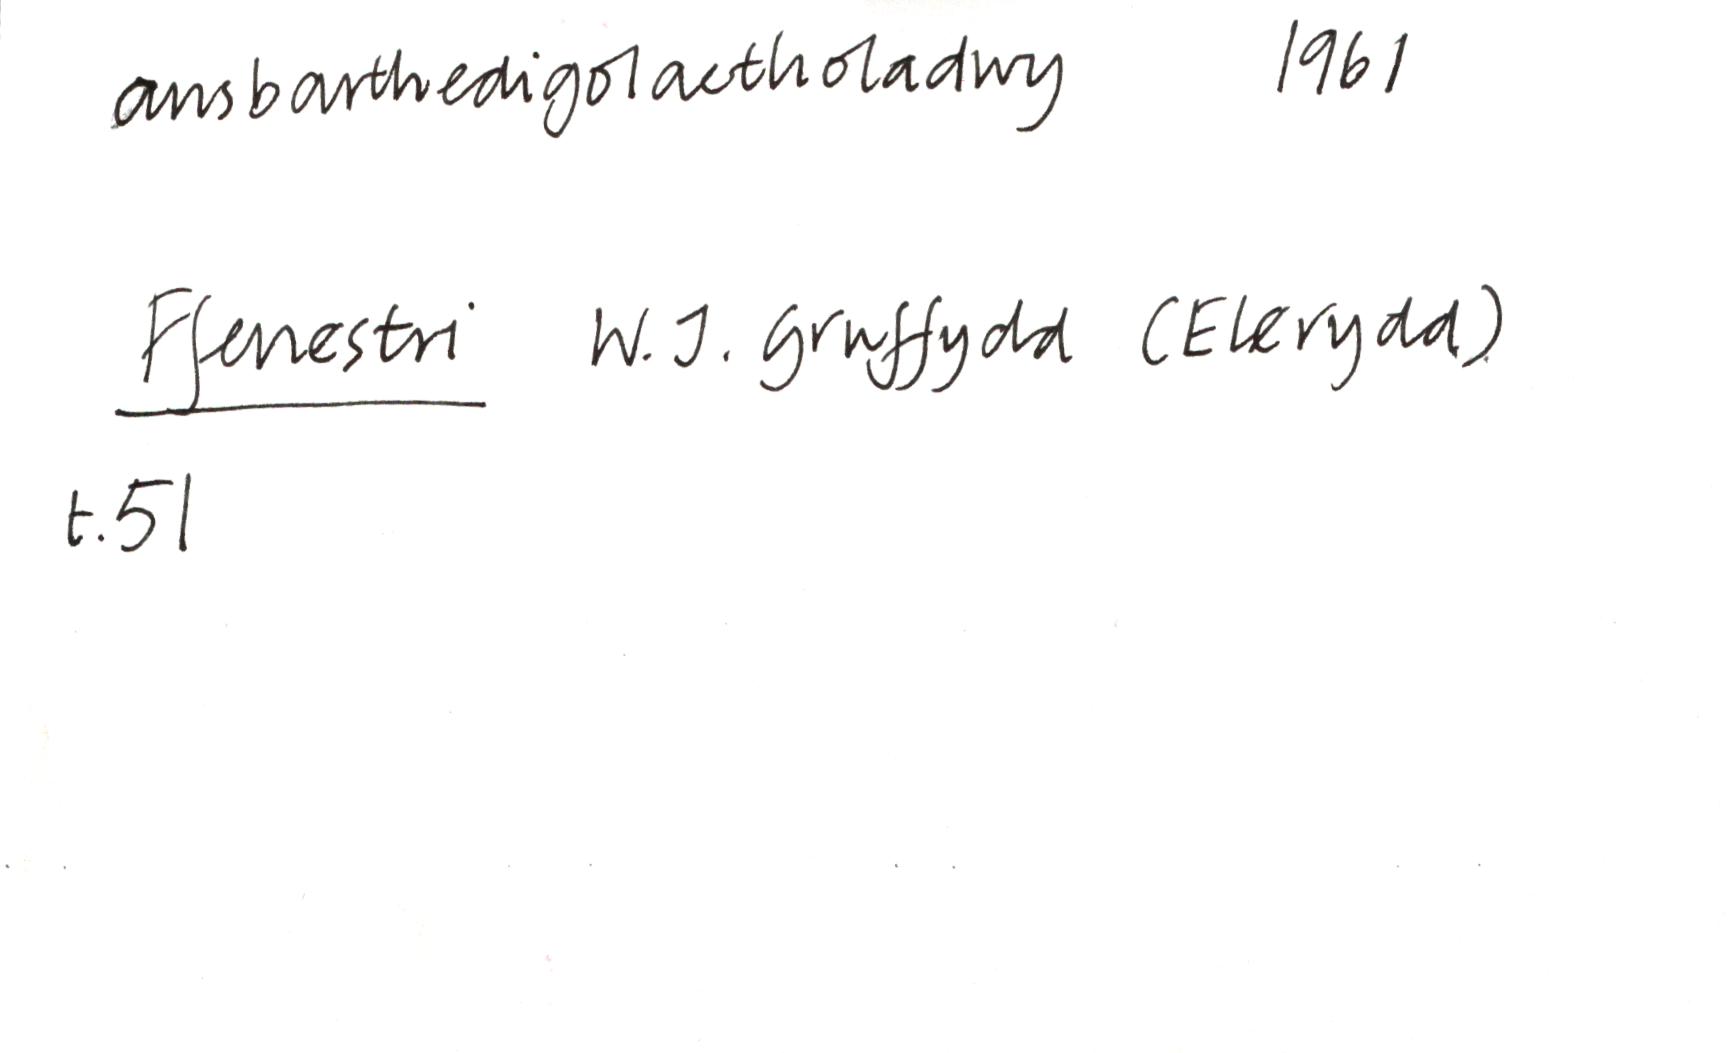 ansbarthedigolaetholadwy 1961
Ffenestri W.J. Gruffydd (Elerydd)
t.51